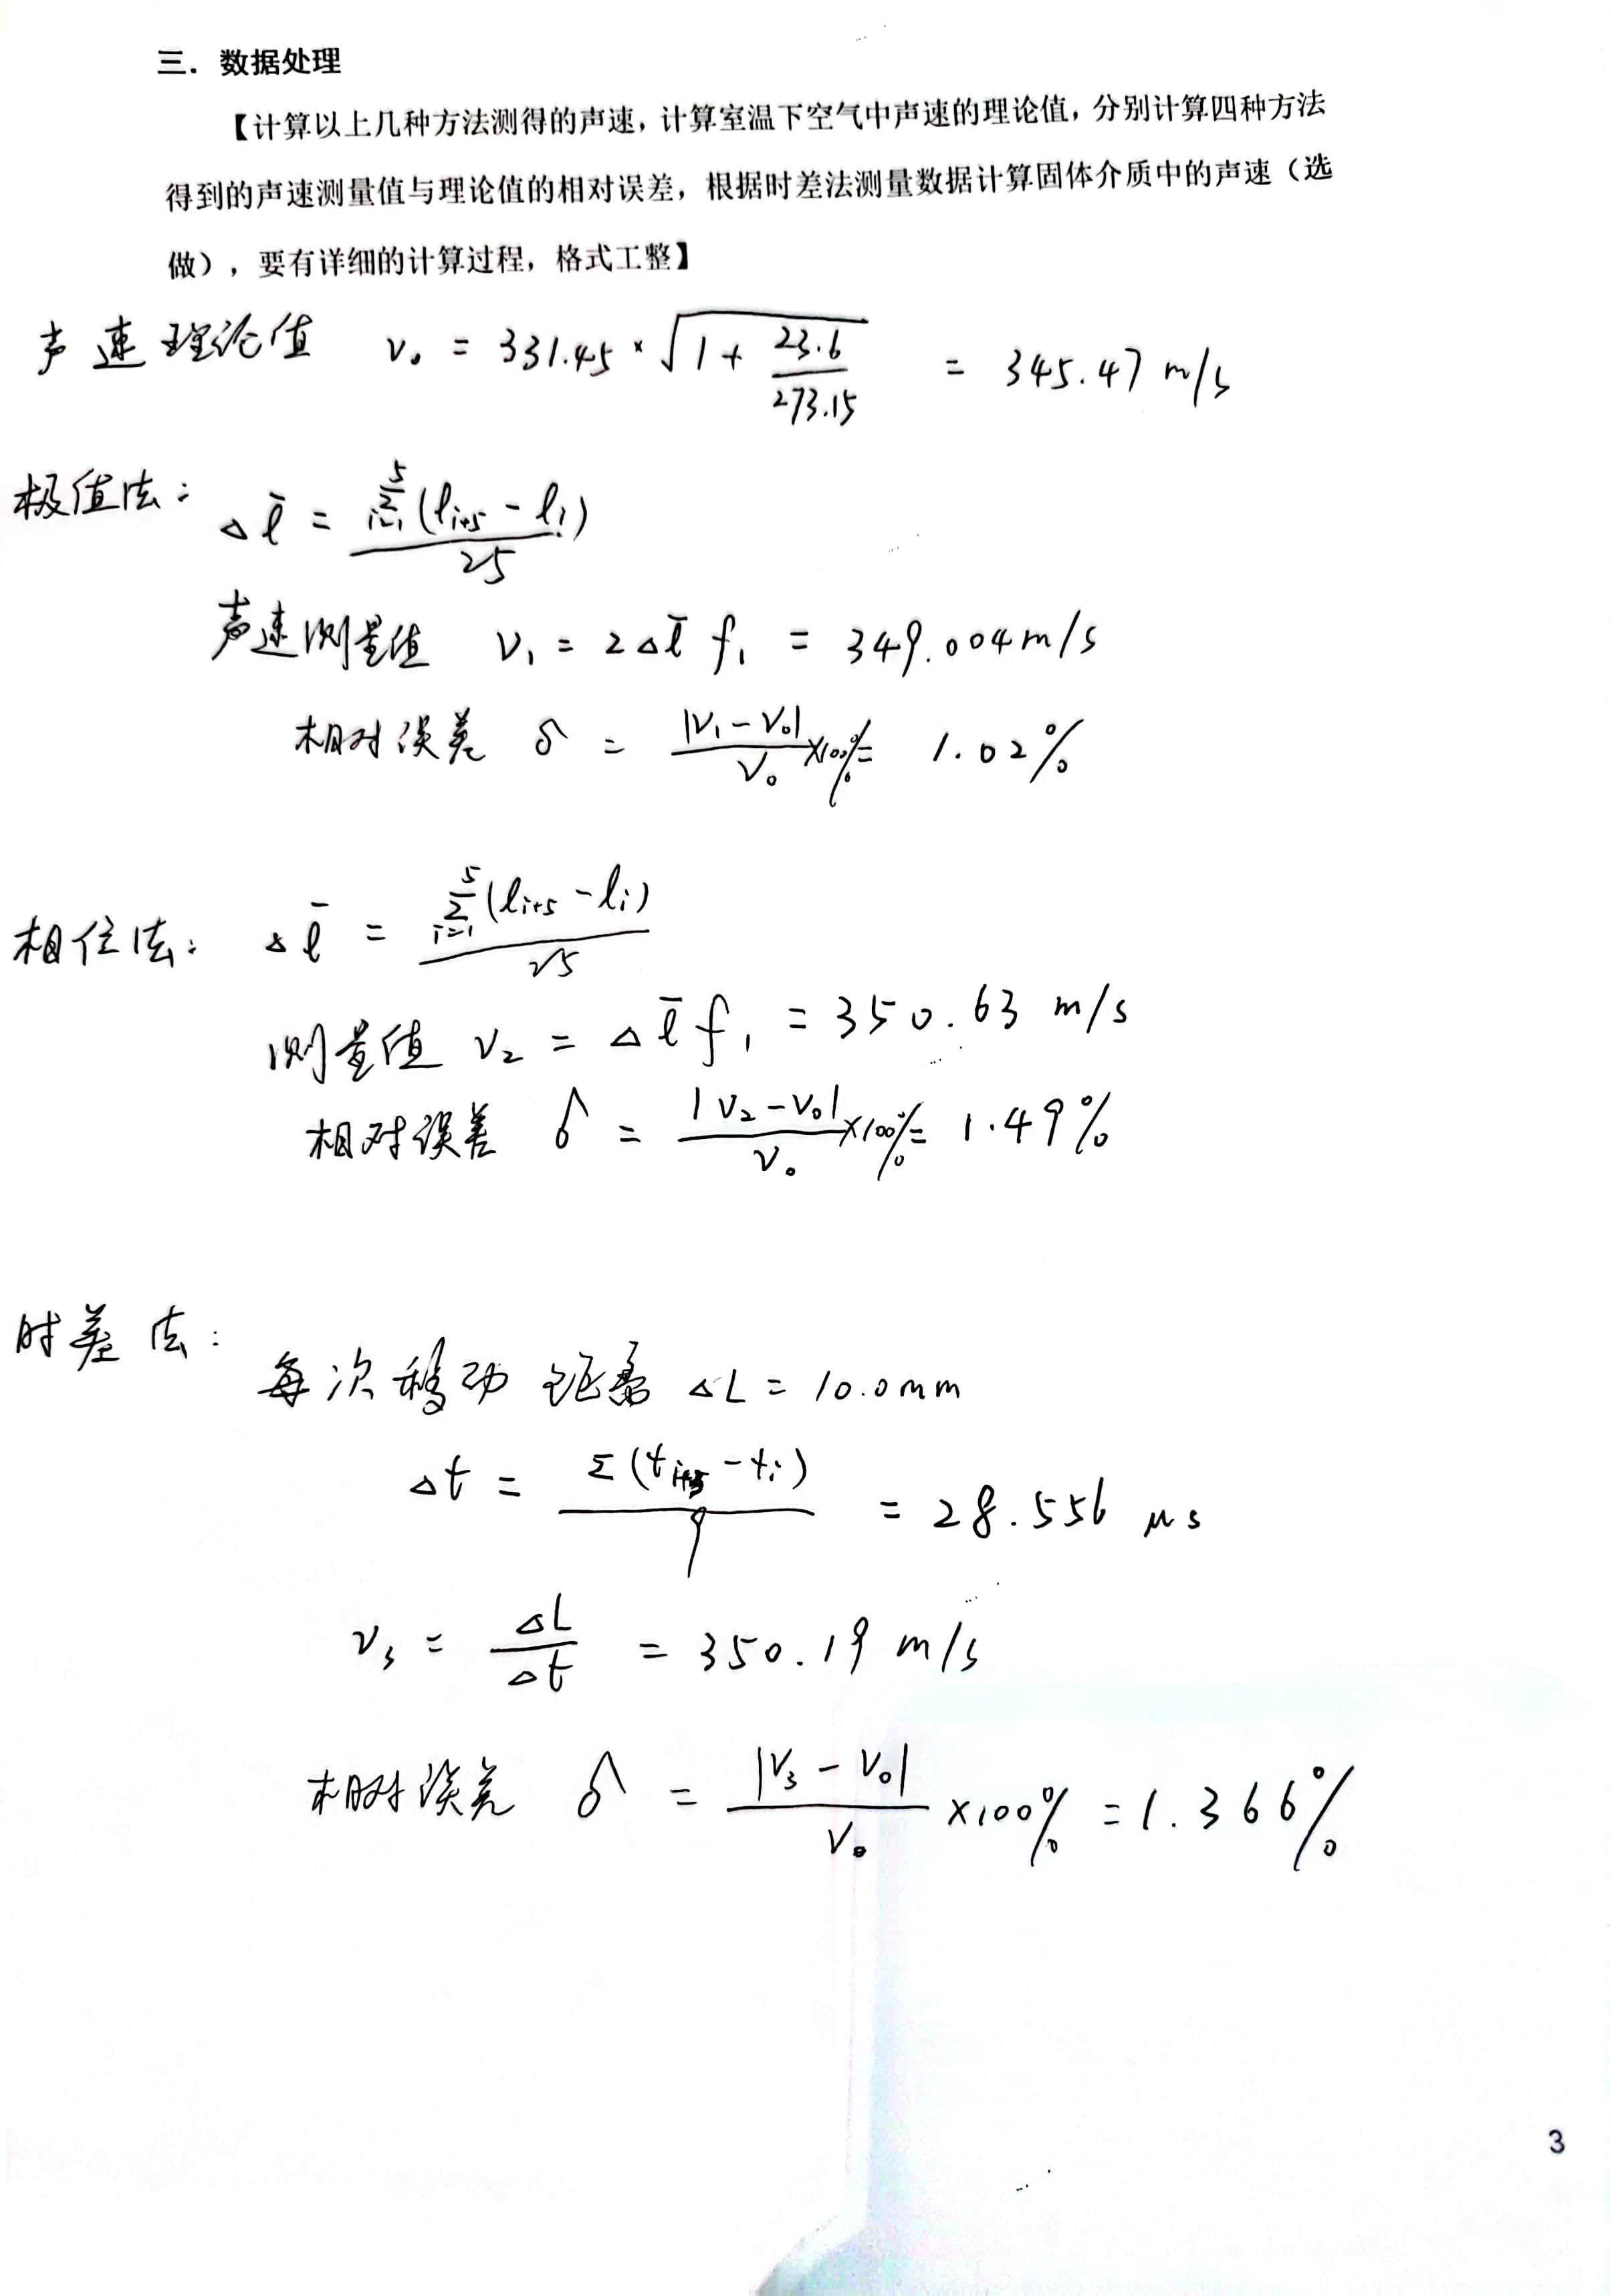 三. 数据处理
【计算以上几种方法测得的声速，计算室温下空气中声速的理论值，分别计算四种方法
得到的声速测量值与理论值的相对误差，根据时差法测量数据计算固体介质中的声速（选
做），要有详细的计算过程，格式工整】
声速理论值 v₀ = 331.45 × √(1 + 23.6/273.15) = 345.47 m/s
极值法: Δl̄ = Σ_{i=1}^{5}(l_{i+5} - l_i)/25
声速测量值 V₁ = 2Δl̄ f₁ = 349.004 m/s
相对误差 δ = |V₁ - V₀|/V₀ ×100% = 1.02%
相位法: Δl̄ = Σ_{i=1}^{5}(l_{i+5} - l_i)/25
测量值 V₂ = Δl̄ f₁ = 350.63 m/s
相对误差 δ = |V₂ - V₀|/V₀ ×100% = 1.49%
时差法:
每次移动距离 ΔL = 10.0mm
Δt = Σ(t_{i+5} - t_i)/9 = 28.556 μs
V₃ = ΔL/Δt = 350.19 m/s
相对误差 δ = |V₃ - V₀|/V₀ ×100% = 1.366%
3